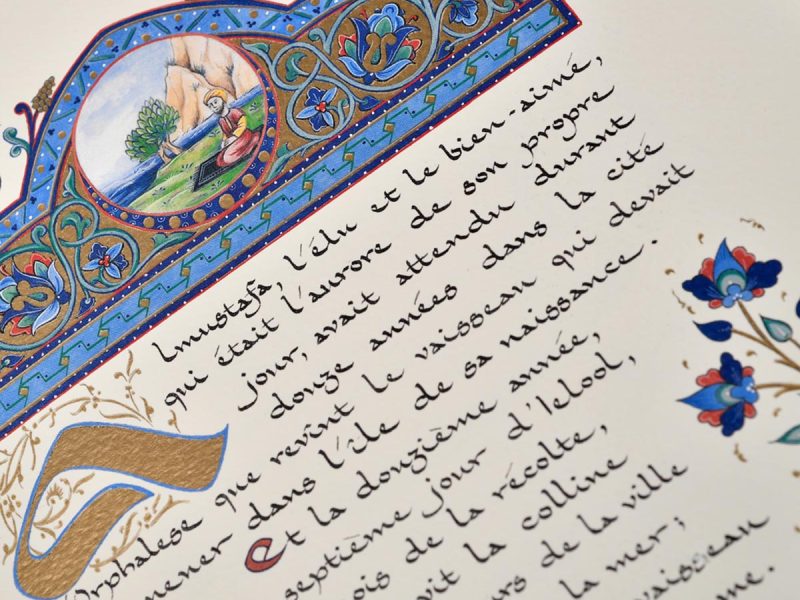 lmustafa, l'élu et le bien-aimé,
qui était l'aurore de son propre
jour, avait attendu durant
douze années dans la cité
Orphalese que revînt le vaisseau qui devait
mener dans l'île de sa naissance.
Et la douzième année,
septième jour d'Ielool,
ois de la récolte,
vit la colline
urs de la ville
la mer;
vaisseau
me.